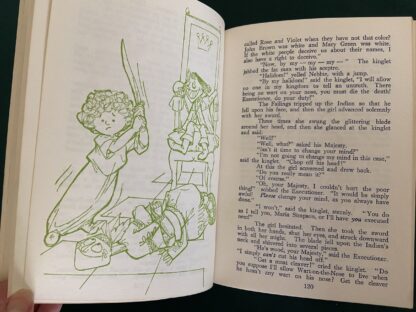 called Rose and Violet when they have not that color?
John Brown was white and Mary Green was white.
If the white people deceive us about their names, I
also have a right to deceive."
"Now, by my — my — my —" The kinglet
jabbed the fat man with his sceptre.
"Halidom!" yelled Nebbie, with a jump.
"By my halidom!" said the kinglet, "I will allow
no one in my kingdom to tell an untruth. There
being no wart on your nose, you must die the death!
Executioner, do your duty!"
The Failings tripped up the Indian so that he
fell upon his face, and then the girl advanced solemnly
with her sword.
Three times she swung the glittering blade
around her head, and then she glanced at the kinglet
and said:
"Well?"
"Well, what?" asked his Majesty.
"Isn't it time to change your mind?"
"I'm not going to change my mind in this case,"
said the kinglet. "Chop off his head!"
At this the girl screamed and drew back.
"Do you really mean it?"
"Of course."
"Oh, your Majesty, I couldn't hurt the poor
thing!" sobbed the Executioner. "It would be simply
awful! Please change your mind, as you always have
done."
"I won't," said the kinglet, sternly. "You do
as I tell you, Maria Simpson, or I'll have you executed
Then she took the sword
in both her hands, shut her eyes, and struck downward
with all her might. The blade fell upon the Indian's
neck and shivered into several pieces.
"He's wood, your Majesty," said the Executioner.
"I simply can't cut his head off."
"Get a meat cleaver!" cried the kinglet. "Do
you suppose I'll allow Wart-on-the-Nose to live when
he hasn't any wart on his nose? Get the cleaver
120